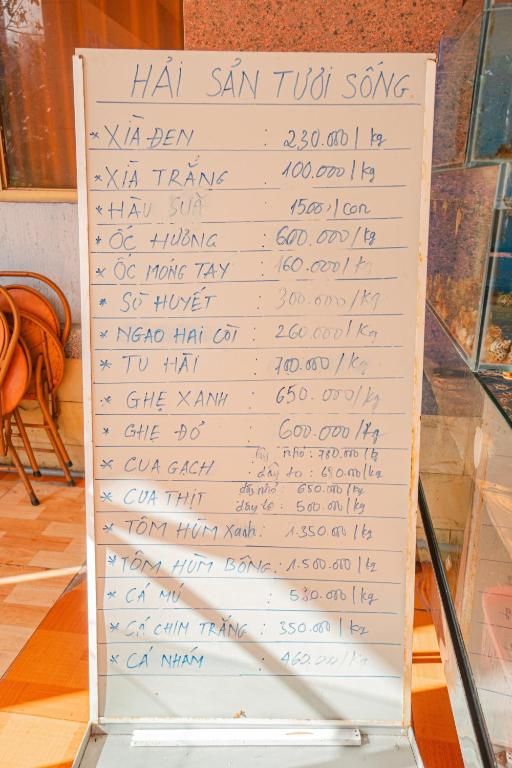 HẢI SẢN TƯƠI SỐNG
* XÌA ĐEN : 230.000 / kg
* XÌA TRẮNG : 100.000 / kg
* HÀU SỮA : 1500 / con
* ỐC HƯƠNG : 600.000 / kg
* ỐC MÓNG TAY : 160.000 / k
* SÒ HUYẾT : 300.000 / kg
* NGAO HAI CỒI : 260.000 / Kg
* TU HÀI : 700.000 / kg
* GHẸ XANH : 650.000 / kg
* GHẸ ĐỎ : 600.000 / kg
* CUA GẠCH dây nhỏ : 780.000 / kg
dây to : 680.000 / kg
* CUA THỊT dây nhỏ : 650.000 / kg
dây to : 500.000 / kg
* TÔM HÙM Xanh : 1.350.000 / kg
* TÔM HÙM BÔNG : 1.500.000 / kg
* CÁ MÚ : 530.000 / kg
* CÁ CHIM TRẮNG : 350.000 / kg
* CÁ NHÁM : 460.000 / kg